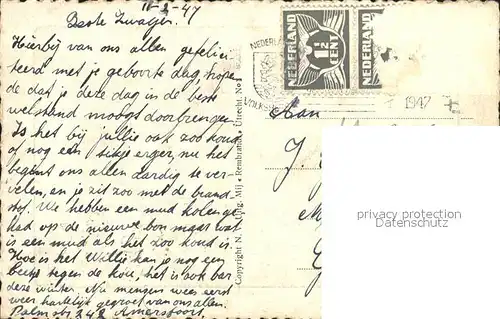 10-2-47
Beste Zwager!
Hierbij van ons allen gefelici
teerd met je geboorte dag, hopen
de dat je deze dag in de beste
welstand moogt doorbrengen.
Is het bij jullie ook zoo koud
of nog een tikje erger, nu het
begint ons allen aardig te ver-
velen, en je zit zoo met de brand
stof. We hebben een mud kolen ge
had op de nieuwe bon maar wat
is een mud als het zoo koud is.
Hoe is het Willy kan je nog een
beetje tegen de kou, het is ook bar
deze winter. Nu mensen wees eerst
weer hartelijk gegroet van ons allen.
Palmstr 242 Amersfoort.
Copyright N. V. Uitg. Mij „Rembrandt" Utrecht No
NEDERLAND
NEDERLAND
1½
CENT
NEDERLAND
1947
Aan
J.
privacy protection
Datenschutz